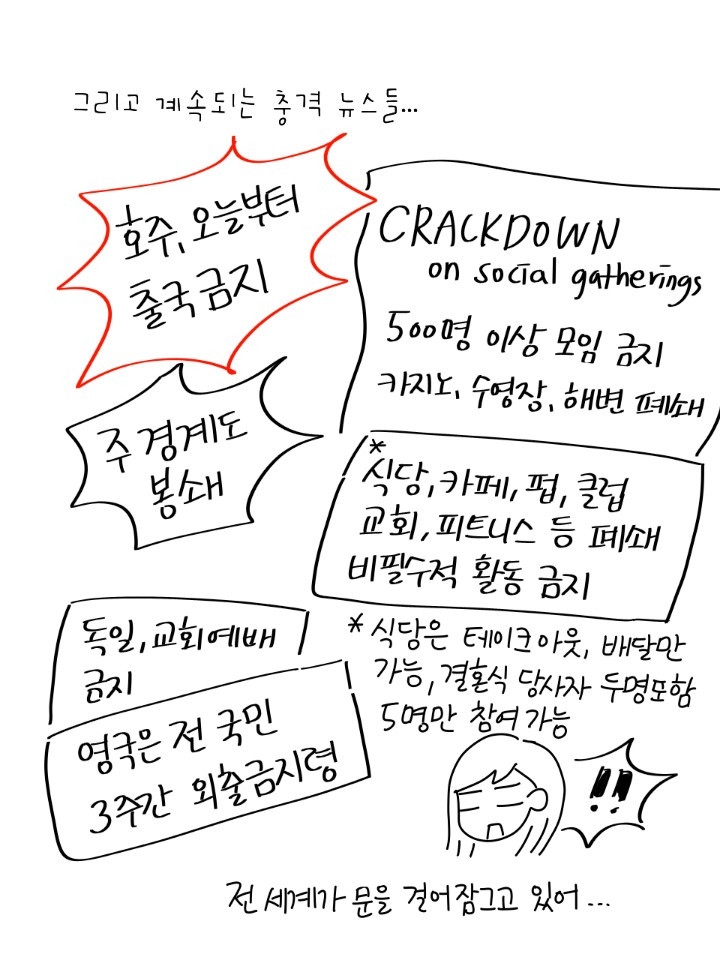 그리고 계속되는 충격 뉴스들...
호주, 오늘부터
출국 금지
CRACKDOWN
on social gatherings
500명 이상 모임 금지
카지노, 수영장, 해변 폐쇄
주 경계도
봉쇄
*
식당, 카페, 펍, 클럽
교회, 피트니스 등 폐쇄
비필수적 활동 금지
* 식당은 테이크아웃, 배달만
가능, 결혼식 당사자 두명포함
5명만 참여가능
독일, 교회예배
금지
영국은 전 국민
3주간 외출금지령
!!
전 세계가 문을 걸어잠그고 있어...